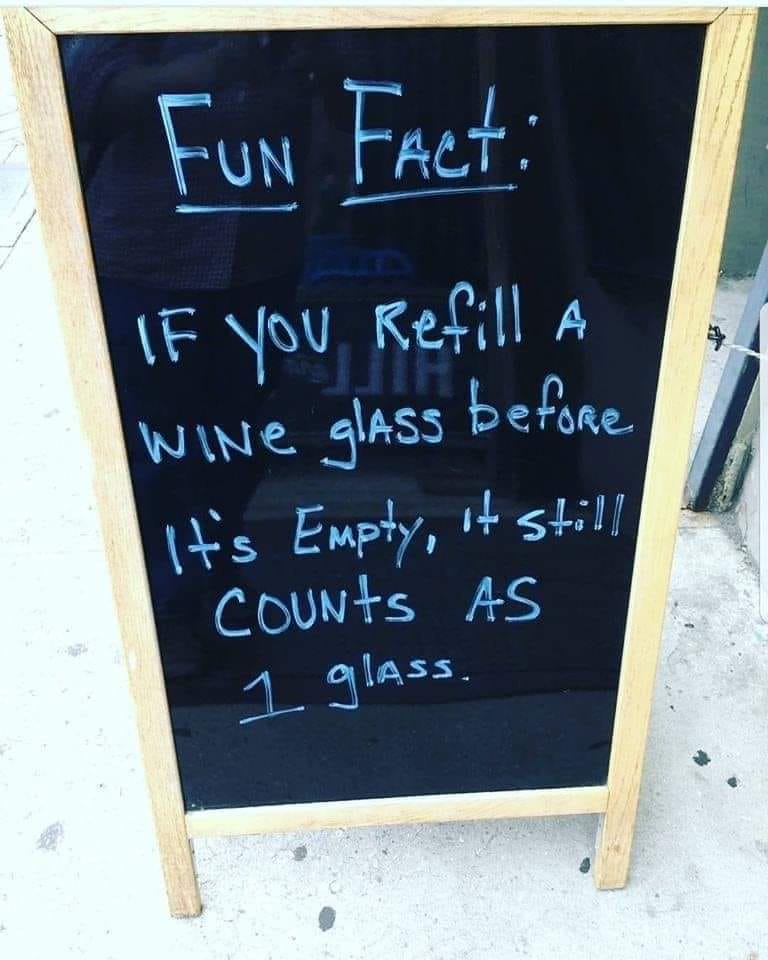 Fun Fact:
If you Refill A
WINe glAss before
It's Empty, it still
COUNts AS
1 glAss.